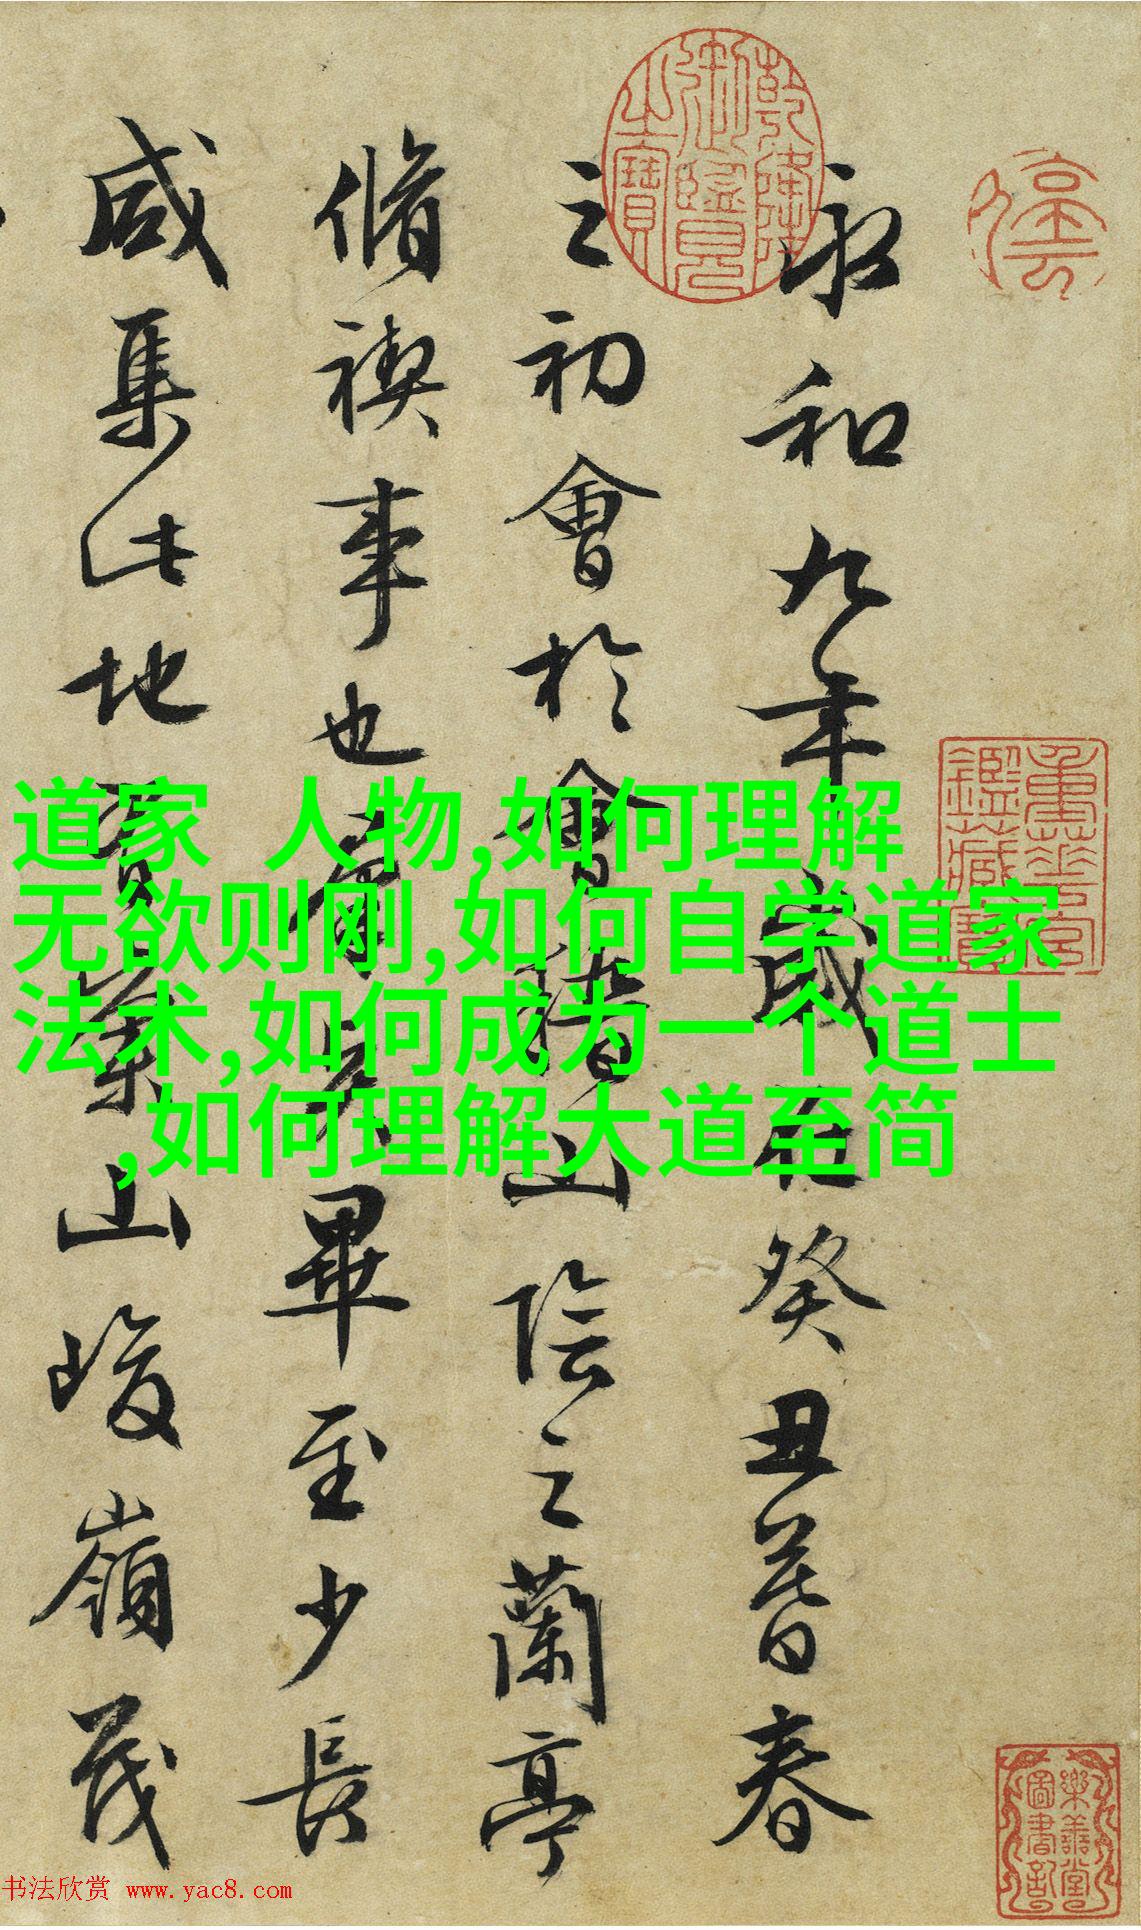 永和九年歲在癸丑暮春
之初會於會稽山陰之蘭亭
脩禊事也羣賢畢至少長
咸集此地有崇山峻嶺茂
乾隆御覽之寶
重華宮鑑藏寶
樂善堂圖書記
道家 人物,如何理解
无欲则刚,如何自学道家
法术,如何成为一个道士
,如何理解大道至简
书法欣赏 www.yac8.com